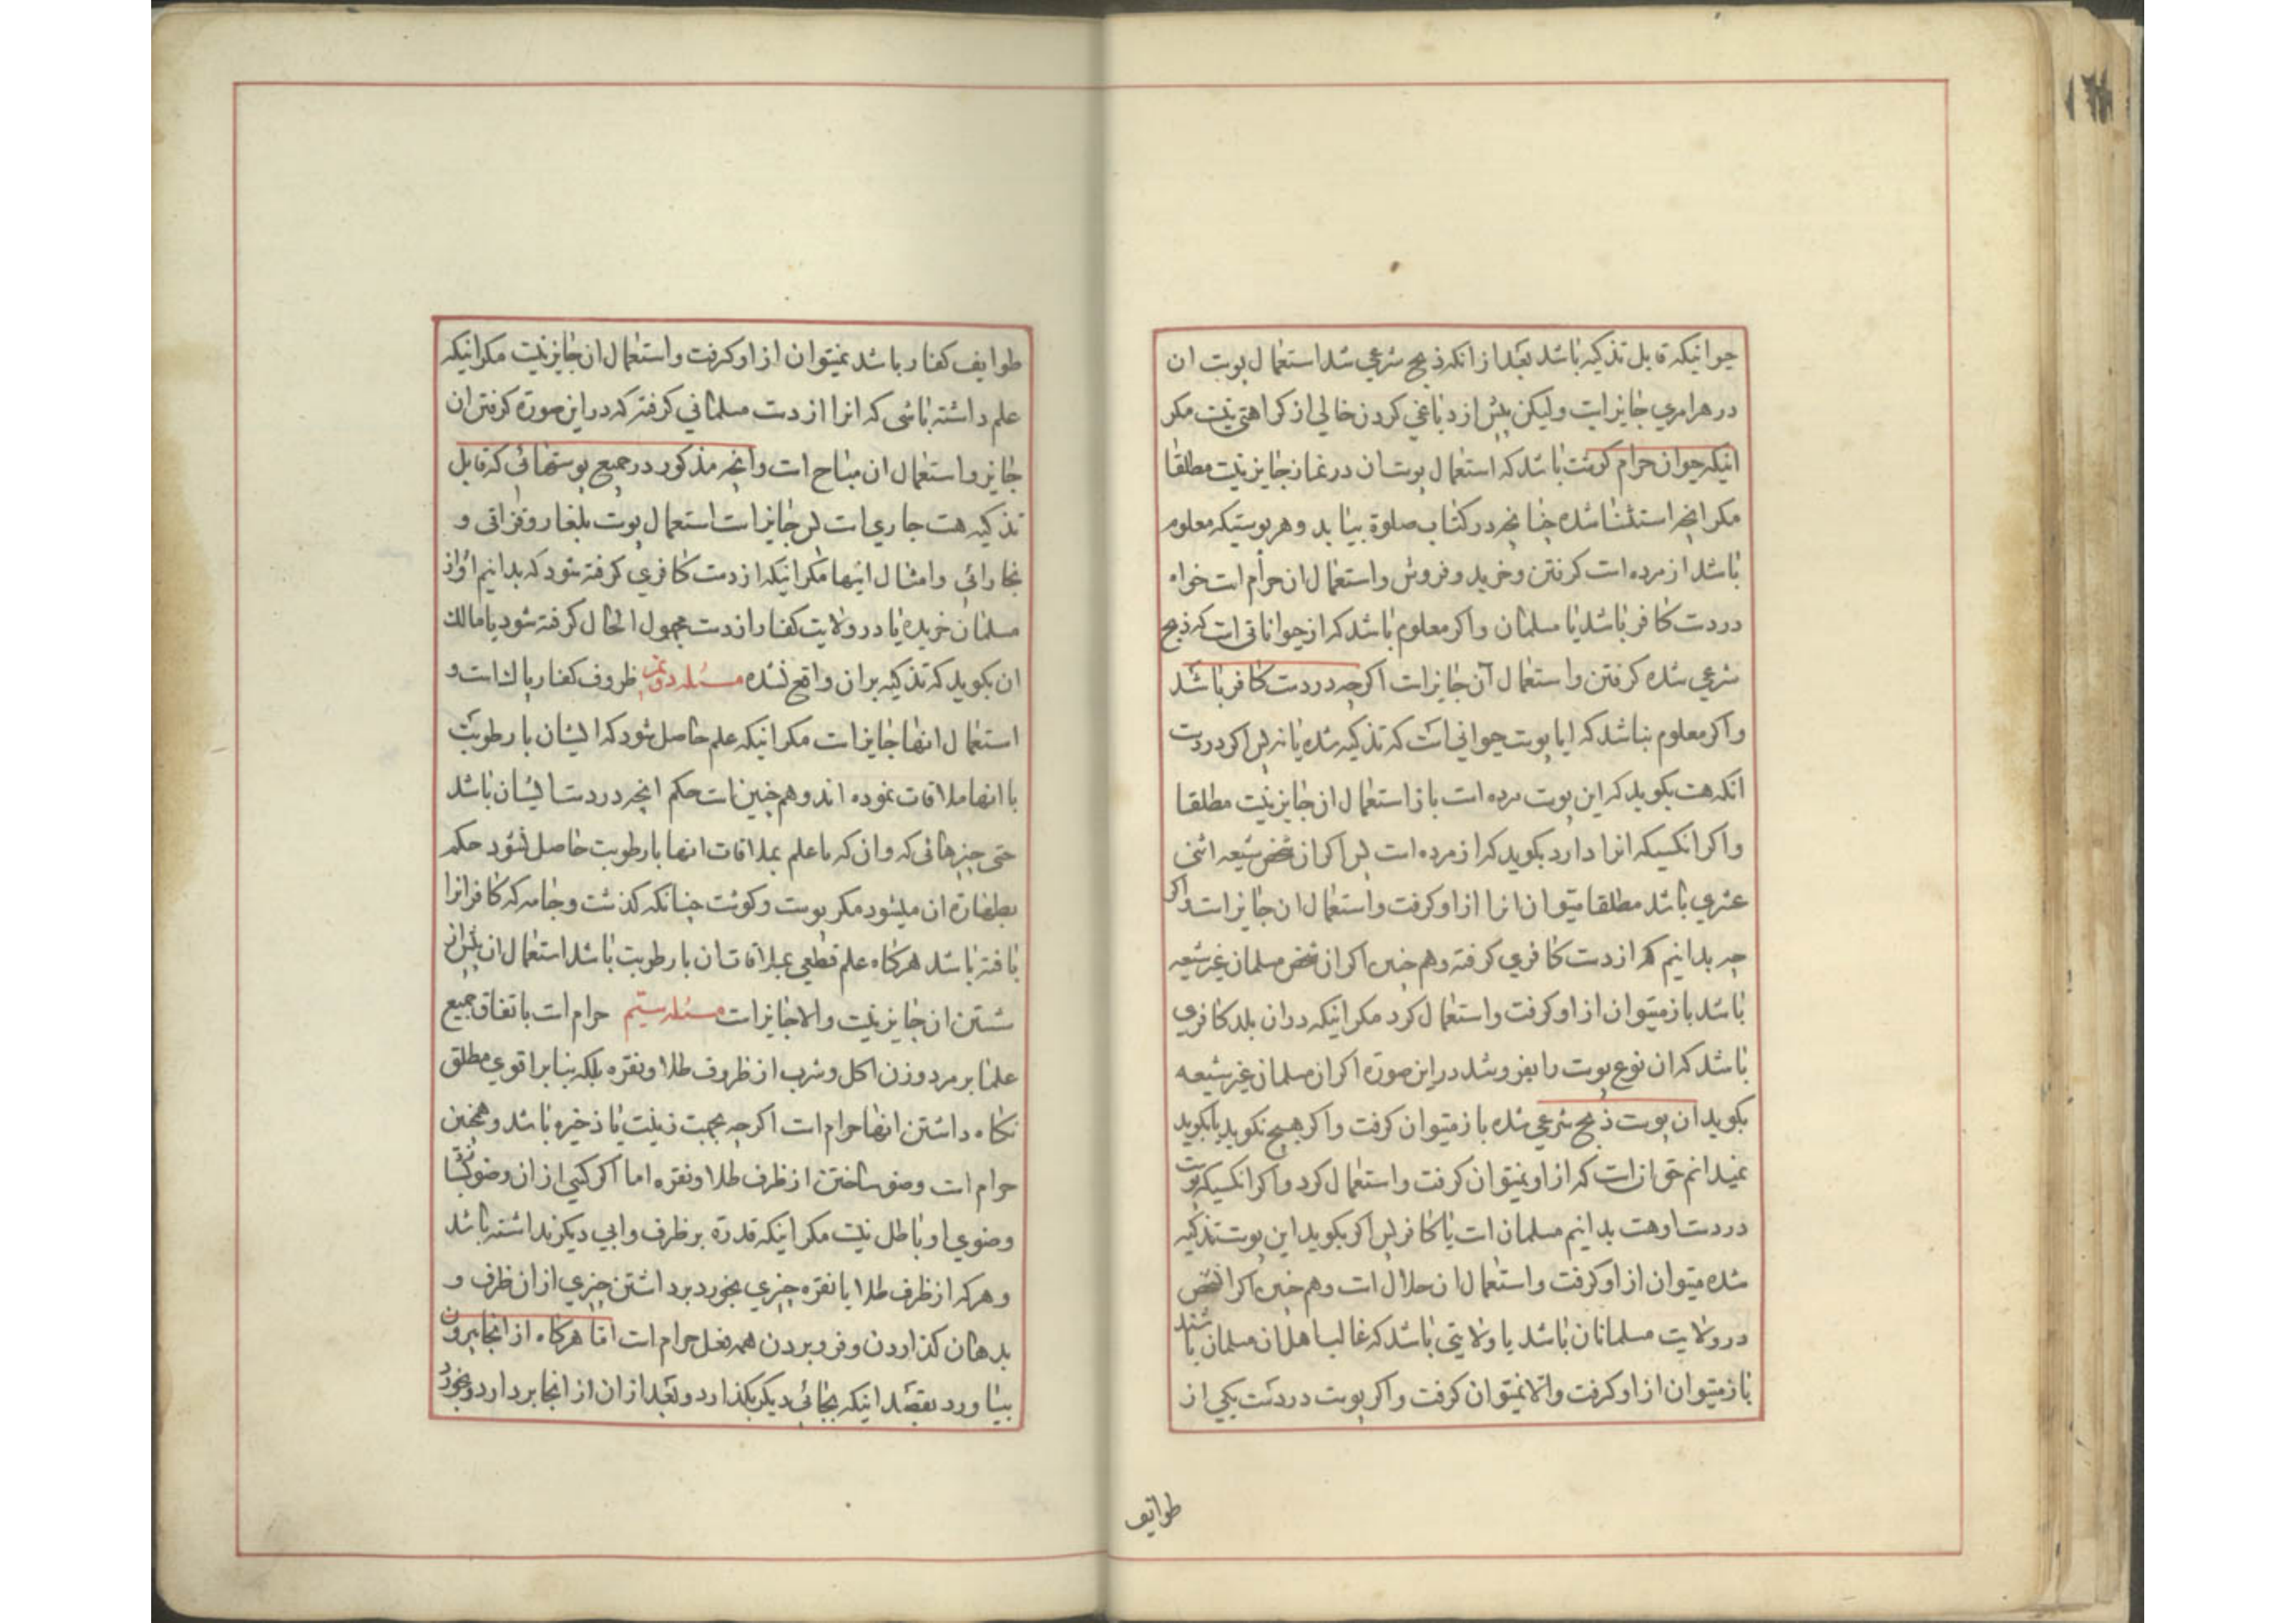 حیوانیکه قابل تذکیه باشد بعد از انکه ذبح شرعی شد استعمال پوست ان
در هر امری جایز است ولیکن پیش از دباغی کردن خالی از کراهتی نیست مکر
اینکه حیوان حرام کوشت باشد که استعمال پوست ان در نماز جایز نیست مطلقا
مکر انچه استثنا شده چنانچه در کتاب صلوة بیاید و هر پوستیکه معلوم
باشد از مرده است کرفتن و خرید و فروش و استعمال ان حرام است خواه
در دست کافر باشد یا مسلمان و اکر معلوم باشد که از حیواناتی است که ذبح
شرعی شده کرفتن و استعمال آن جایز است اکرچه در دست کافر باشد
و اکر معلوم نباشد که ایا پوست حیوانی است که تذکیه شده یا نه پس اکر در دست
انکه هست بکوید که این پوست مرده است باز استعمال ان جایز نیست مطلقا
و اکر انکسیکه انرا دارد بکوید که از مرده است پس اکر ان شخص شیعه اثنی
عشری باشد مطلقا میتوان انرا از او کرفت و استعمال ان جایز است اکر
چه بدانیم که از دست کافری کرفته و هم چنین اکر ان شخص مسلمان غیر شیعه
باشد باز میتوان از او کرفت و استعمال کرد مکر اینکه در ان بلد کافری
باشد که ان نوع پوست را بفروشد در این صورة اکر ان مسلمان غیر شیعه
بکوید ان پوست ذبح شرعی شده باز میتوان کرفت و اکر هیچ نکوید یا بکوید
نمیدانم حق ان است که از او نمیتوان کرفت و استعمال کرد و اکر انکسیکه پوست
در دست او هست بدانیم مسلمان است یا کافر پس اکر بکوید این پوست تذکیه
شده میتوان از او کرفت و استعمال ان حلال است و هم چنین اکر ان شخص
در ولایت مسلمانان باشد یا ولایتی باشد که غالب اهل ان مسلمان باشند
باز میتوان از او کرفت والا نمیتوان کرفت و اکر پوست در دست یکی از
طوایف
طوایف کفار باشد نمیتوان از او کرفت و استعمال ان جایز نیست مکر اینکه
علم داشته باشی که انرا از دست مسلمانی کرفته که در این صورة کرفتن ان
جایز و استعمال ان مباح است و انچه مذکور در جمیع پوستهائی که قابل
تذکیه هست جاری است پس جایز است استعمال پوست بلغار و قزاقی و
بخارائی و امثال اینها مکر اینکه از دست کافری کرفته شود که بدانیم او از
مسلمان خریده یا در ولایت کفار از دست مجهول الحال کرفته شود یا مالک
ان بکوید که تذکیه بر ان واقع نشده مسئله دویم ظروف کفار پاک است و
استعمال انها جایز است مکر اینکه علم حاصل شود که ایشان با رطوبت
با انها ملاقات نموده اند و هم چنین است حکم انچه در دست ایشان باشد
حتی چیزهائی که وان که ما علم بملاقات انها با رطوبت حاصل نشود حکم
بطهارة ان میشود مکر پوست و کوشت چنانکه کذشت و جامه که کافر انرا
بافته باشد هرکاه علم قطعی بملاقات ان با رطوبت باشد استعمال ان پیش از
شستن ان جایز نیست والا جایز است مسئله سیّم حرام است باتفاق جمیع
علما بر مرد و زن اکل و شرب از ظروف طلا و نقره بلکه بنا بر اقوی مطلق
نکاه داشتن انها حرام است اکرچه بجهت زینت یا ذخیره باشد و همچنین
حرام است وضو ساختن از ظرف طلا و نقره اما اکر کسی از ان وضو
وضوی او باطل نیست مکر اینکه قدرة بر ظرف و ابی دیکر نداشته باشد
و هر که از ظرف طلا یا نقره چیزی بخورد برداشتن چیزی از ان ظرف و
بدهان کذاردن و فرو بردن همه فعل حرام است امّا هرکاه از انجا بیرون
بیاورد بقصد اینکه بجائی دیکر بکذارد و بعد از ان از انجا بردارد و بخورد